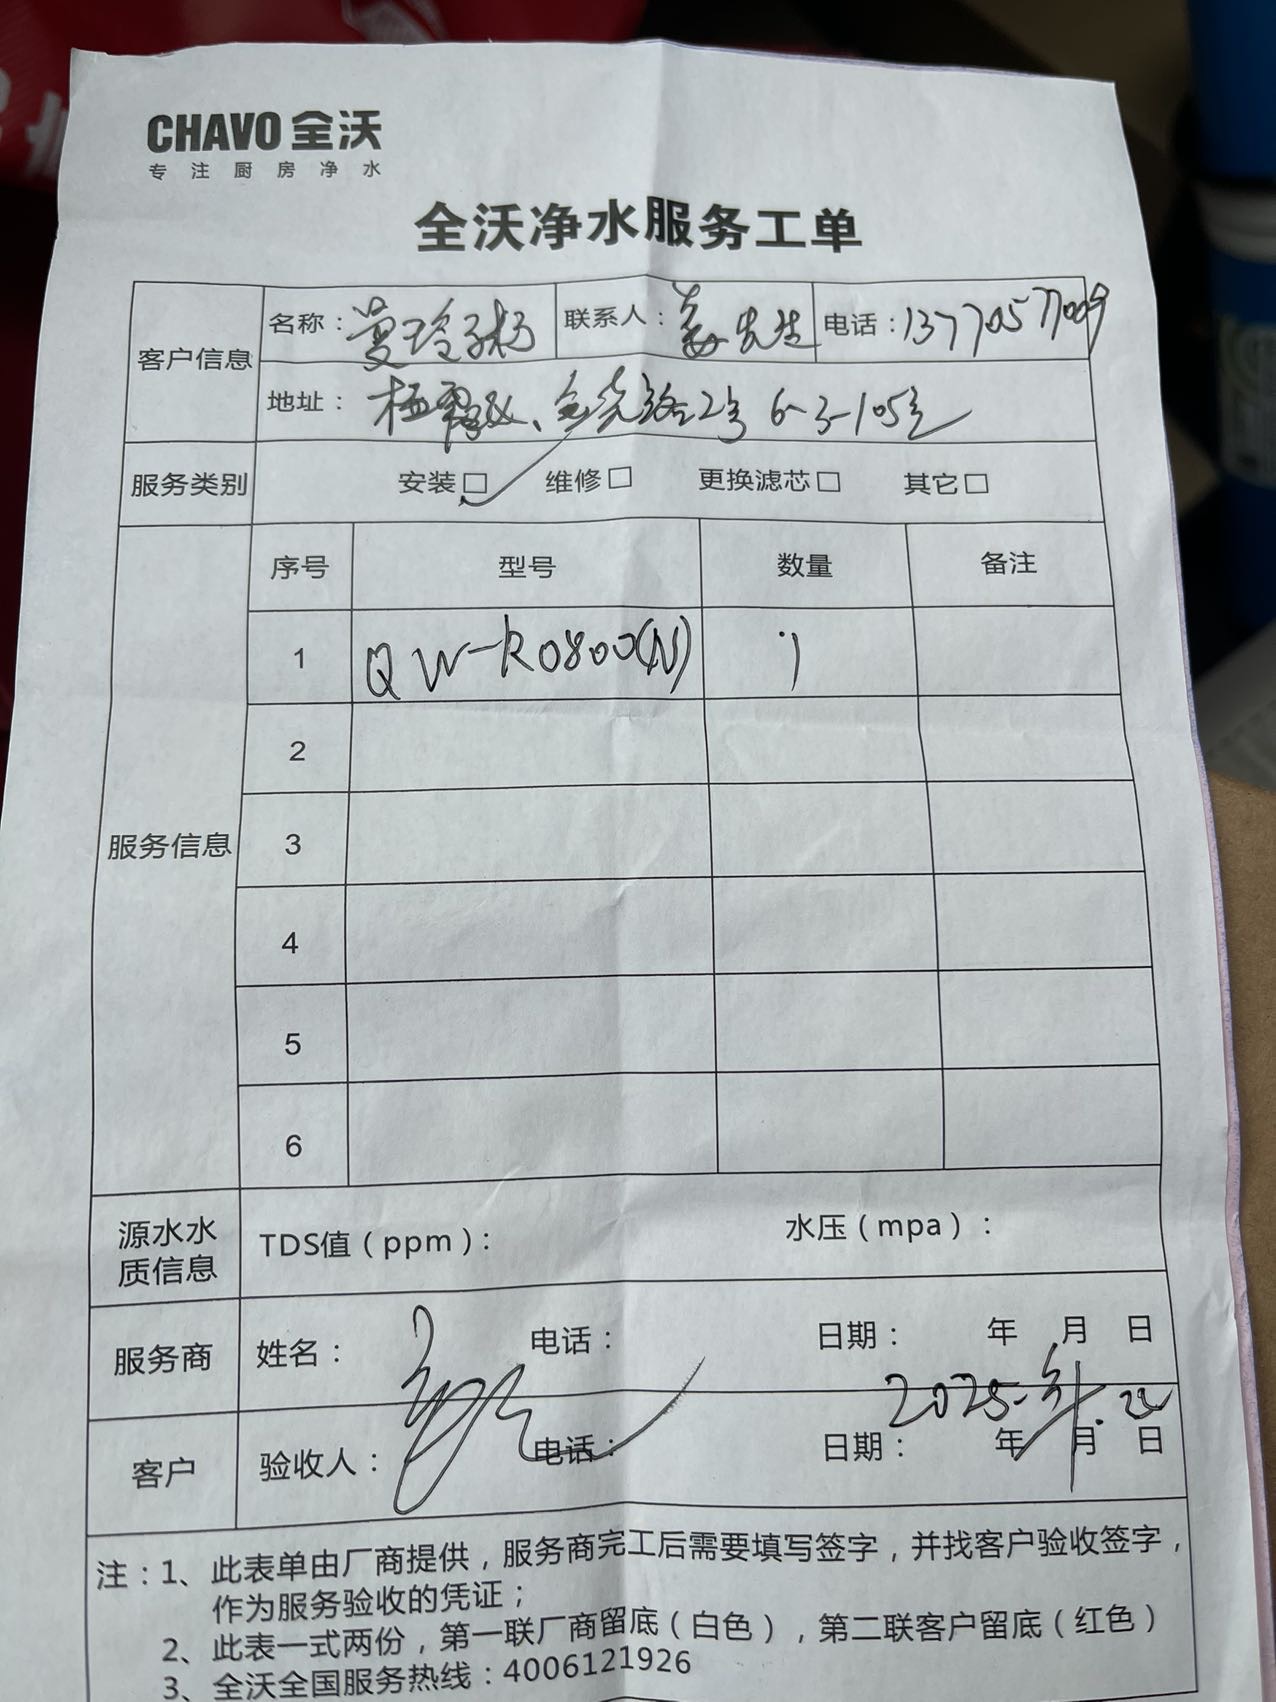 CHAVO 全沃
专注厨房净水
全沃净水服务工单
客户信息
名称：曼玲粥 联系人：姜先生 电话：13770577009
地址：栖霞区、尧路2号 6-3-105室
服务类别 安装□ 维修□ 更换滤芯□ 其它□
服务信息
序号 型号 数量 备注
1 QW-R0800(N) 1
2
3
4
5
6
源水水质信息 TDS值（ppm）： 水压（mpa）：
服务商 姓名： 电话： 日期： 年 月 日
2025. .22
客户 验收人： 电话： 日期： 年 月 日
注：1、此表单由厂商提供，服务商完工后需要填写签字，并找客户验收签字，
作为服务验收的凭证；
2、此表一式两份，第一联厂商留底（白色），第二联客户留底（红色）
3、全沃全国服务热线：4006121926